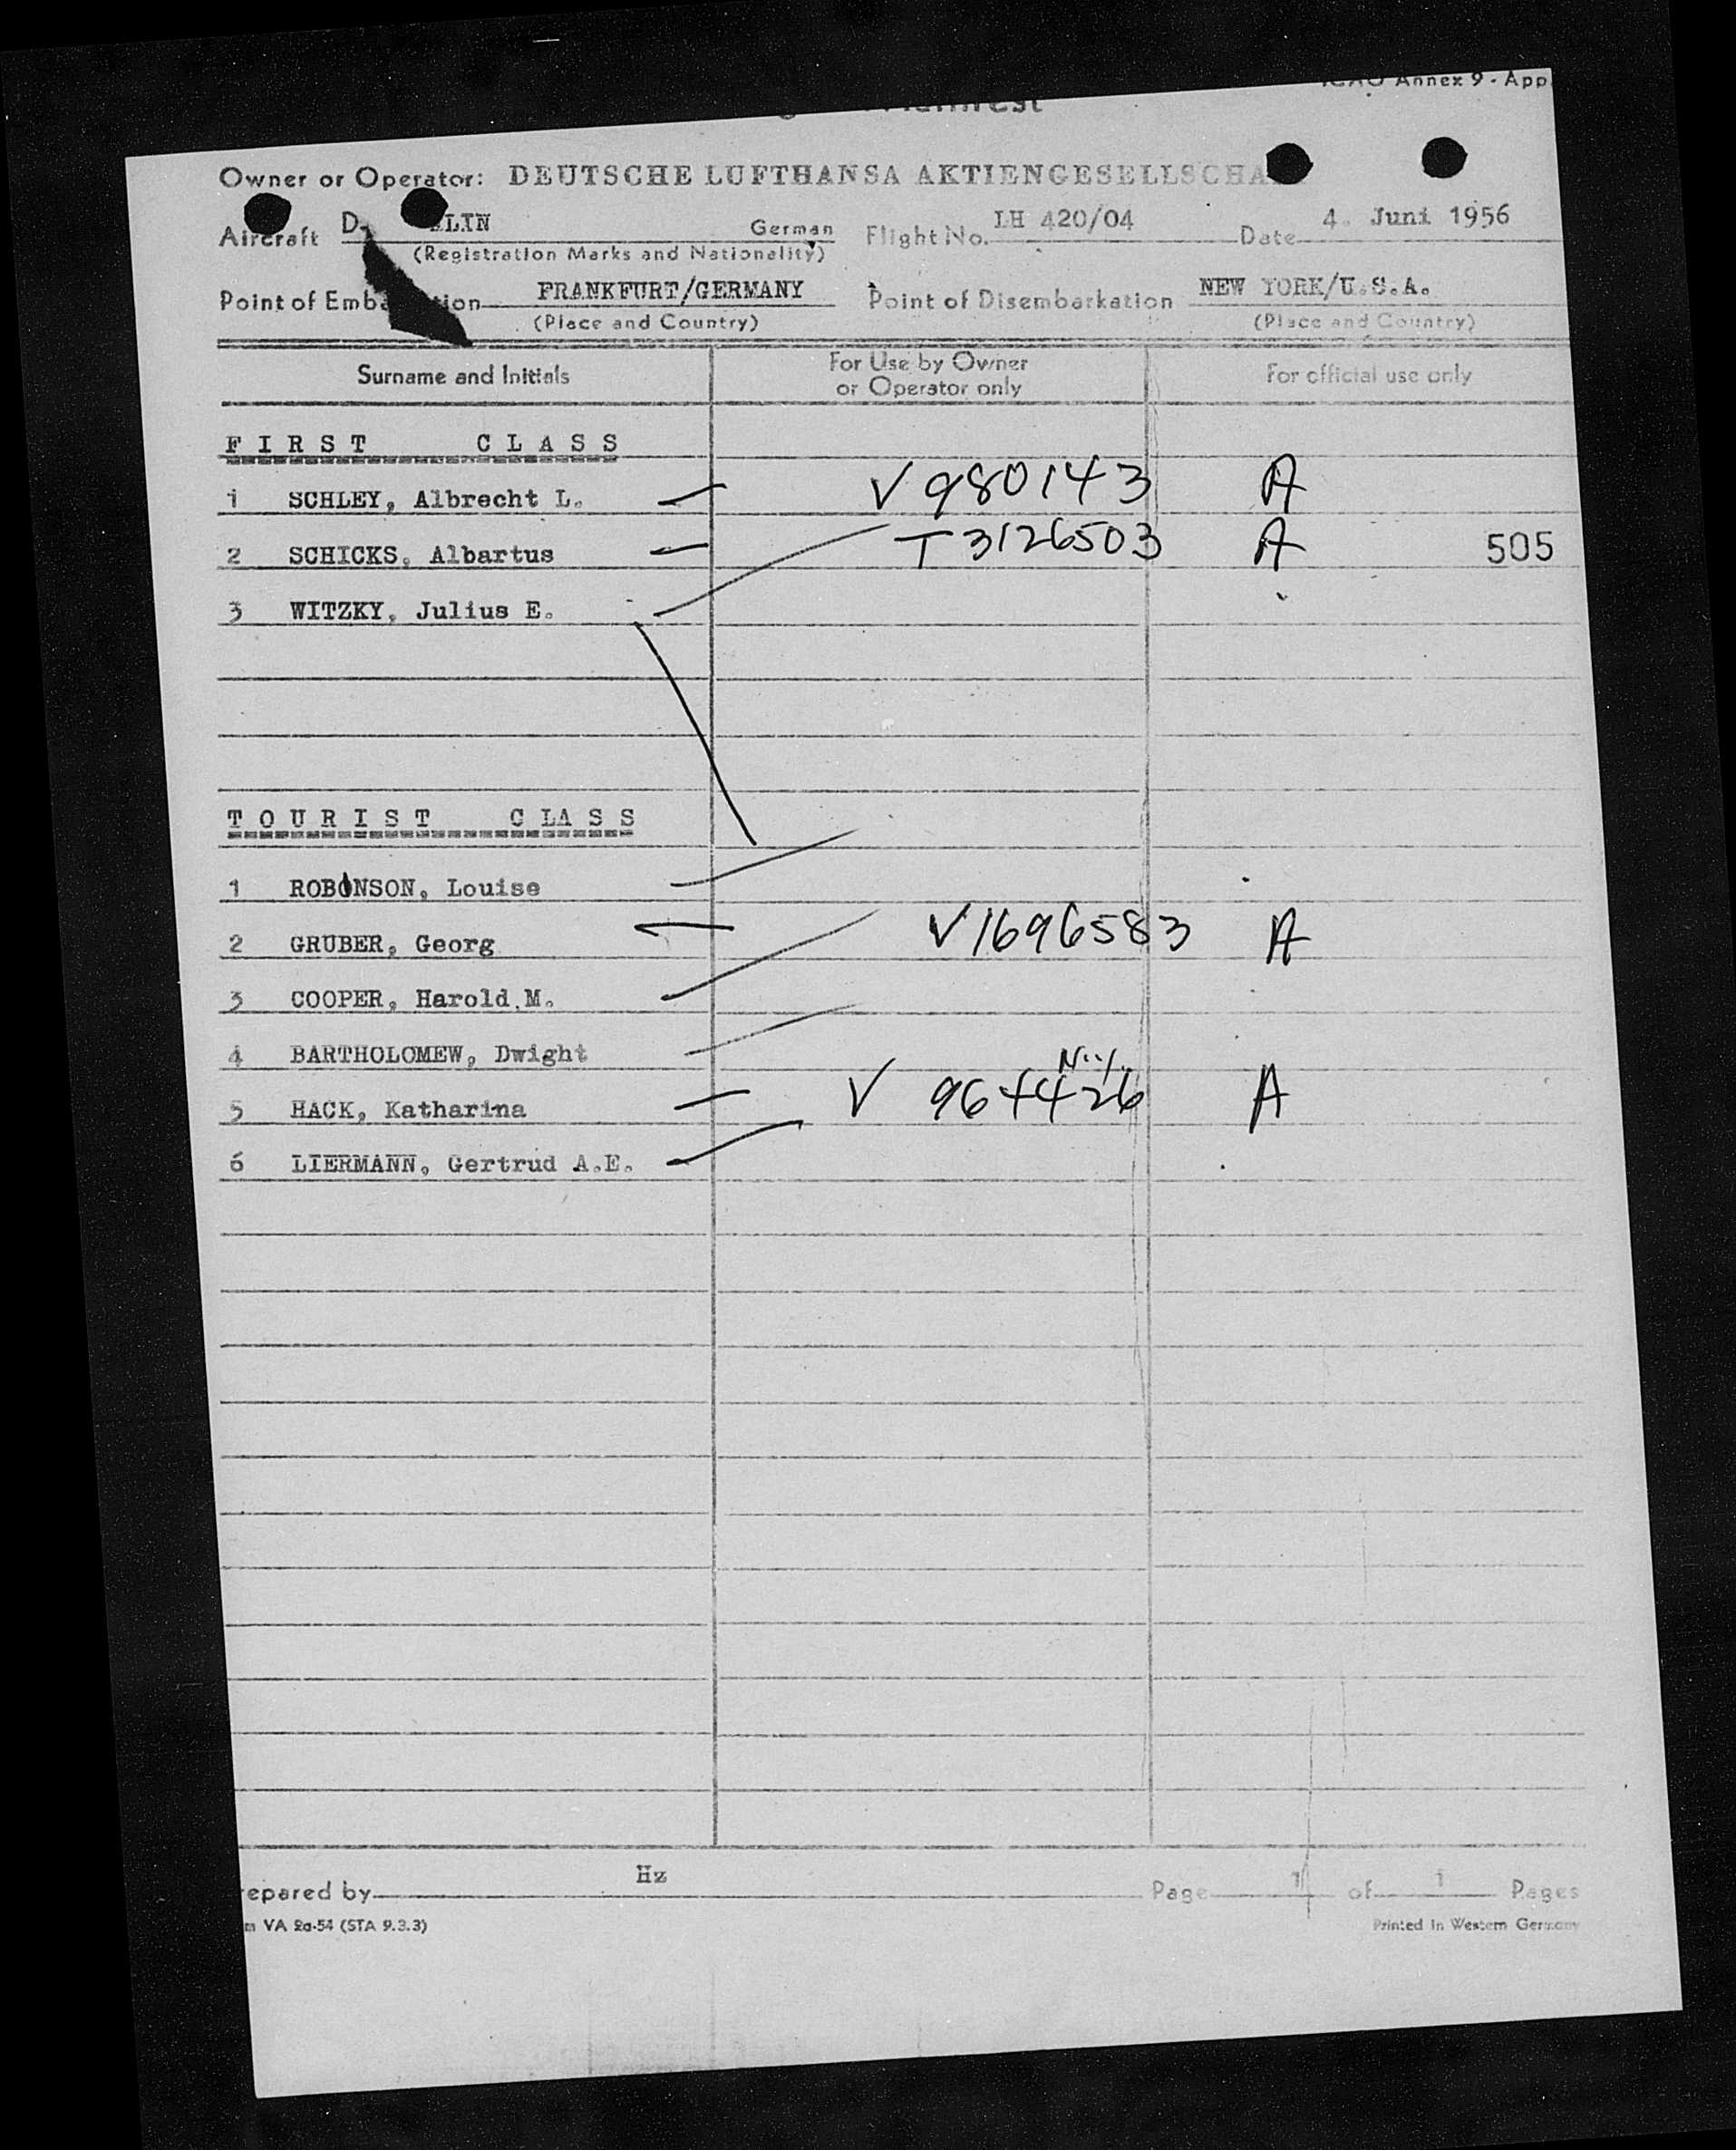 ICAO Annex 9 - App.
Manifest
Owner or Operator: DEUTSCHE LUFTHANSA AKTIENGESELLSCHA
Aircraft D- LIN German Flight No. LH 420/04 Date 4. Juni 1956
(Registration Marks and Nationality)
Point of Emba tion FRANKFURT/GERMANY Point of Disembarkation NEW YORK/U.S.A.
(Place and Country) (Place and Country)
Surname and Initials For Use by Owner or Operator only For official use only
FIRST CLASS
1 SCHLEY, Albrecht L. V 980143 A
2 SCHICKS, Albartus T 3126503 A 505
3 WITZKY, Julius E.
TOURIST CLASS
1 ROBINSON, Louise
2 GRUBER, Georg V1696583 A
3 COOPER, Harold M.
4 BARTHOLOMEW, Dwight
5 HACK, Katharina V 964426 A
6 LIERMANN, Gertrud A.E.
Hz
epared by Page 1 of 1 Pages
m VA 2a-54 (STA 9.3.3) Printed in Western Germany